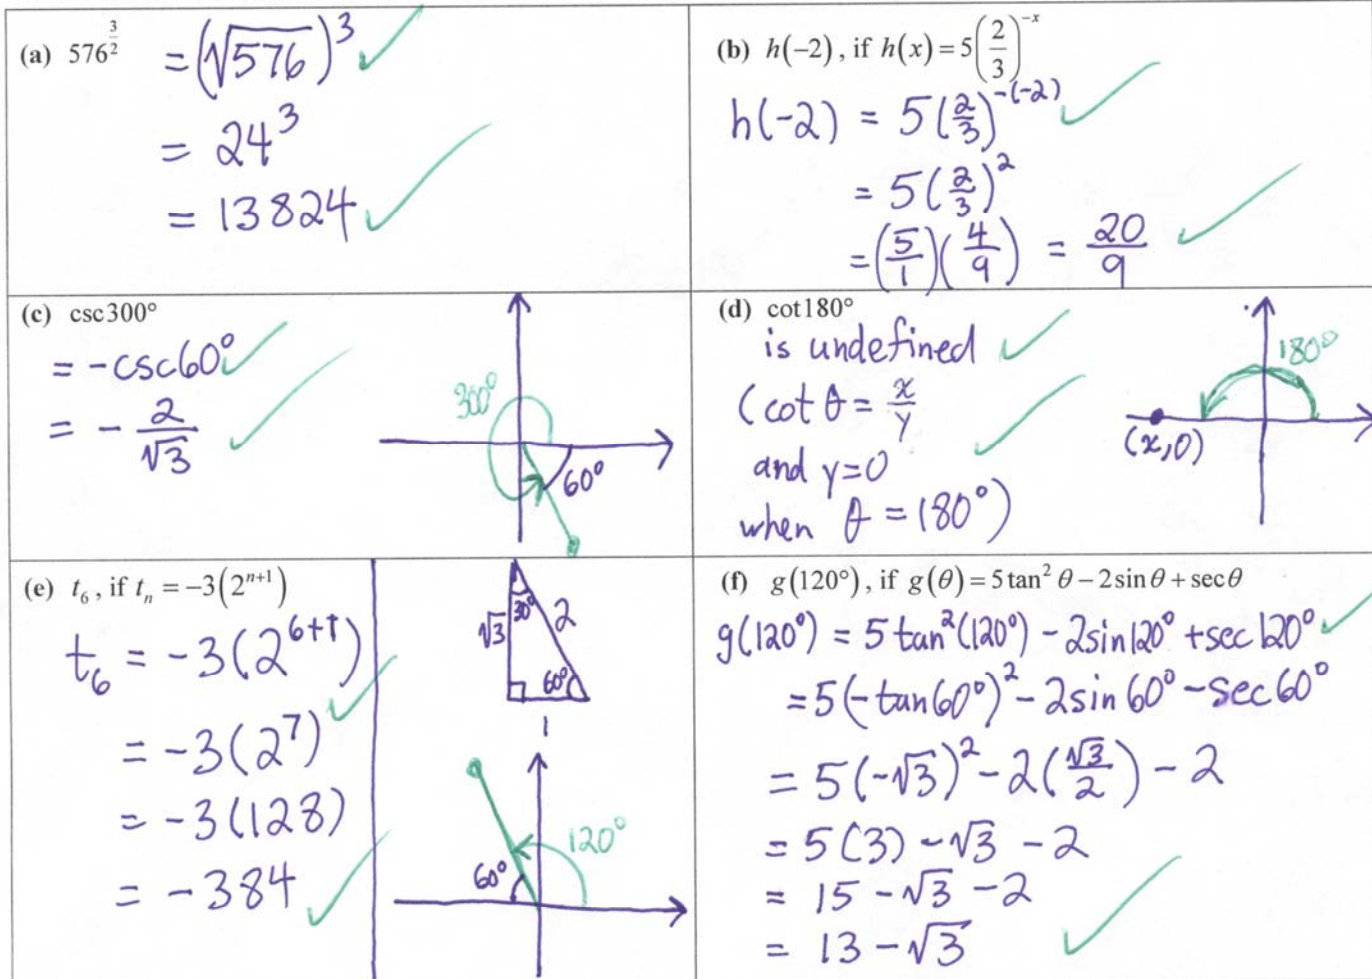 (a) 576^(3/2) = (√576)^3
= 24^3
= 13824
(b) h(-2), if h(x) = 5(2/3)^(-x)
h(-2) = 5(2/3)^(-(-2))
= 5(2/3)^2
= (5/1)(4/9) = 20/9
(c) csc300°
= -csc60°
= - 2/√3
300°
60°
(d) cot180°
is undefined
(cot θ = x/y
and y=0
when θ = 180°)
180°
(x,0)
(e) t_6, if t_n = -3(2^(n+1))
t_6 = -3(2^(6+1))
= -3(2^7)
= -3(128)
= -384
30°
√3
2
60°
1
120°
60°
(f) g(120°), if g(θ) = 5tan²θ - 2sinθ + secθ
g(120°) = 5tan²(120°) - 2sin120° + sec120°
= 5(-tan60°)² - 2sin60° - sec60°
= 5(-√3)² - 2(√3/2) - 2
= 5(3) - √3 - 2
= 15 - √3 - 2
= 13 - √3